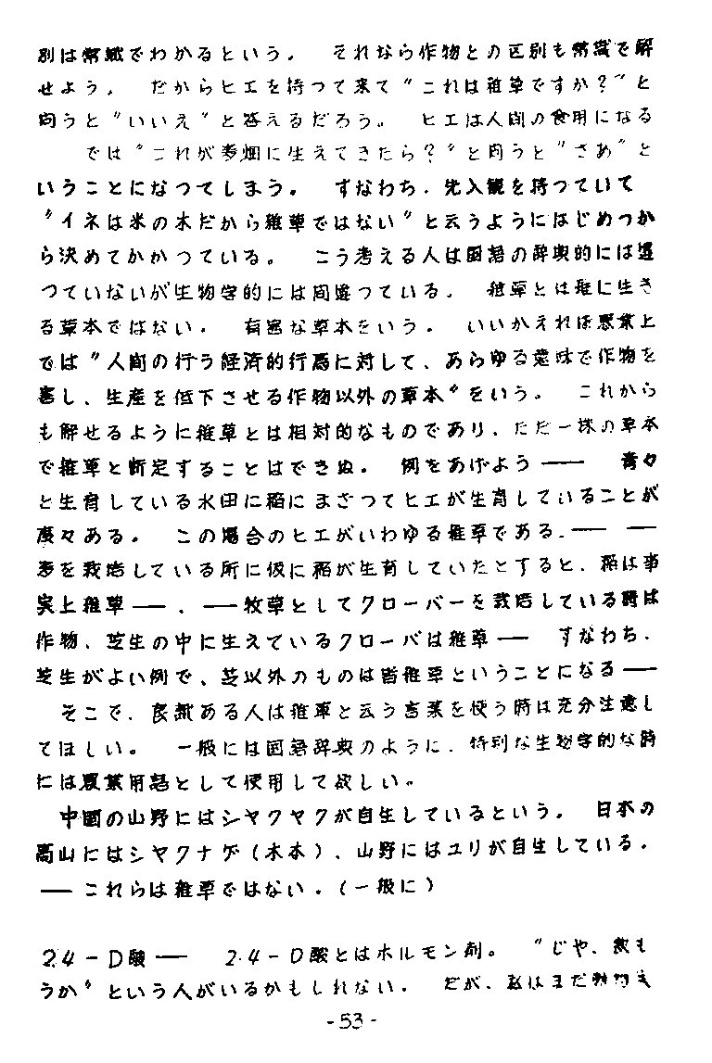 別は常識でわかるという。 それなら作物との区別も常識で解
せよう。 だからヒエを持つて来て〝これは雑草ですか？〟と
向うと〝いいえ〟と答えるだろう。 ヒエは人間の食用になる
では〝これが麦畑に生えてきたら？〟と向うと〝さあ〟と
いうことになつてしまう。 すなわち、先入観を持つていて
〝イネは米の木だから雑草ではない〟と云うようにはじめつか
ら決めてかかつている。 こう考える人は国語の辞典的には違
つていないが生物学的には間違つている。 雑草とは単に生き
る草本ではない。 有害な草本をいう。 いいかえれば農業上
では〝人間の行う経済的行為に対して、あらゆる意味で作物を
害し、生産を低下させる作物以外の草本〟をいう。 これから
も解せるように雑草とは相対的なものであり、ただ一株の草本
で雑草と断定することはできぬ。 例をあげよう―― 青々
と生育している水田に稲にまさつてヒエが生育していることが
度々ある。 この場合のヒエがいわゆる雑草である。―― ――
麦を栽培している所に仮に稲が生育していたとすると、稲は事
実上雑草――、――牧草としてクローバーを栽培している時は
作物、芝生の中に生えているクローバは雑草―― すなわち、
芝生がよい例で、芝以外のものは皆雑草ということになる――
そこで、良識ある人は雑草と云う言葉を使う時は充分注意し
てほしい。 一般には国語辞典のように、特別な生物学的な時
には農業用語として使用して欲しい。
中国の山野にはシヤクヤクが自生しているという。 日本の
高山にはシヤクナゲ（木本）、山野にはユリが自生している。
――これらは雑草ではない。（一般に）
2.4－D酸―― 2.4－D酸とはホルモン剤。 〝じや、飲も
うか〟という人がいるかもしれない。 だが、私はまだ動物
-53-